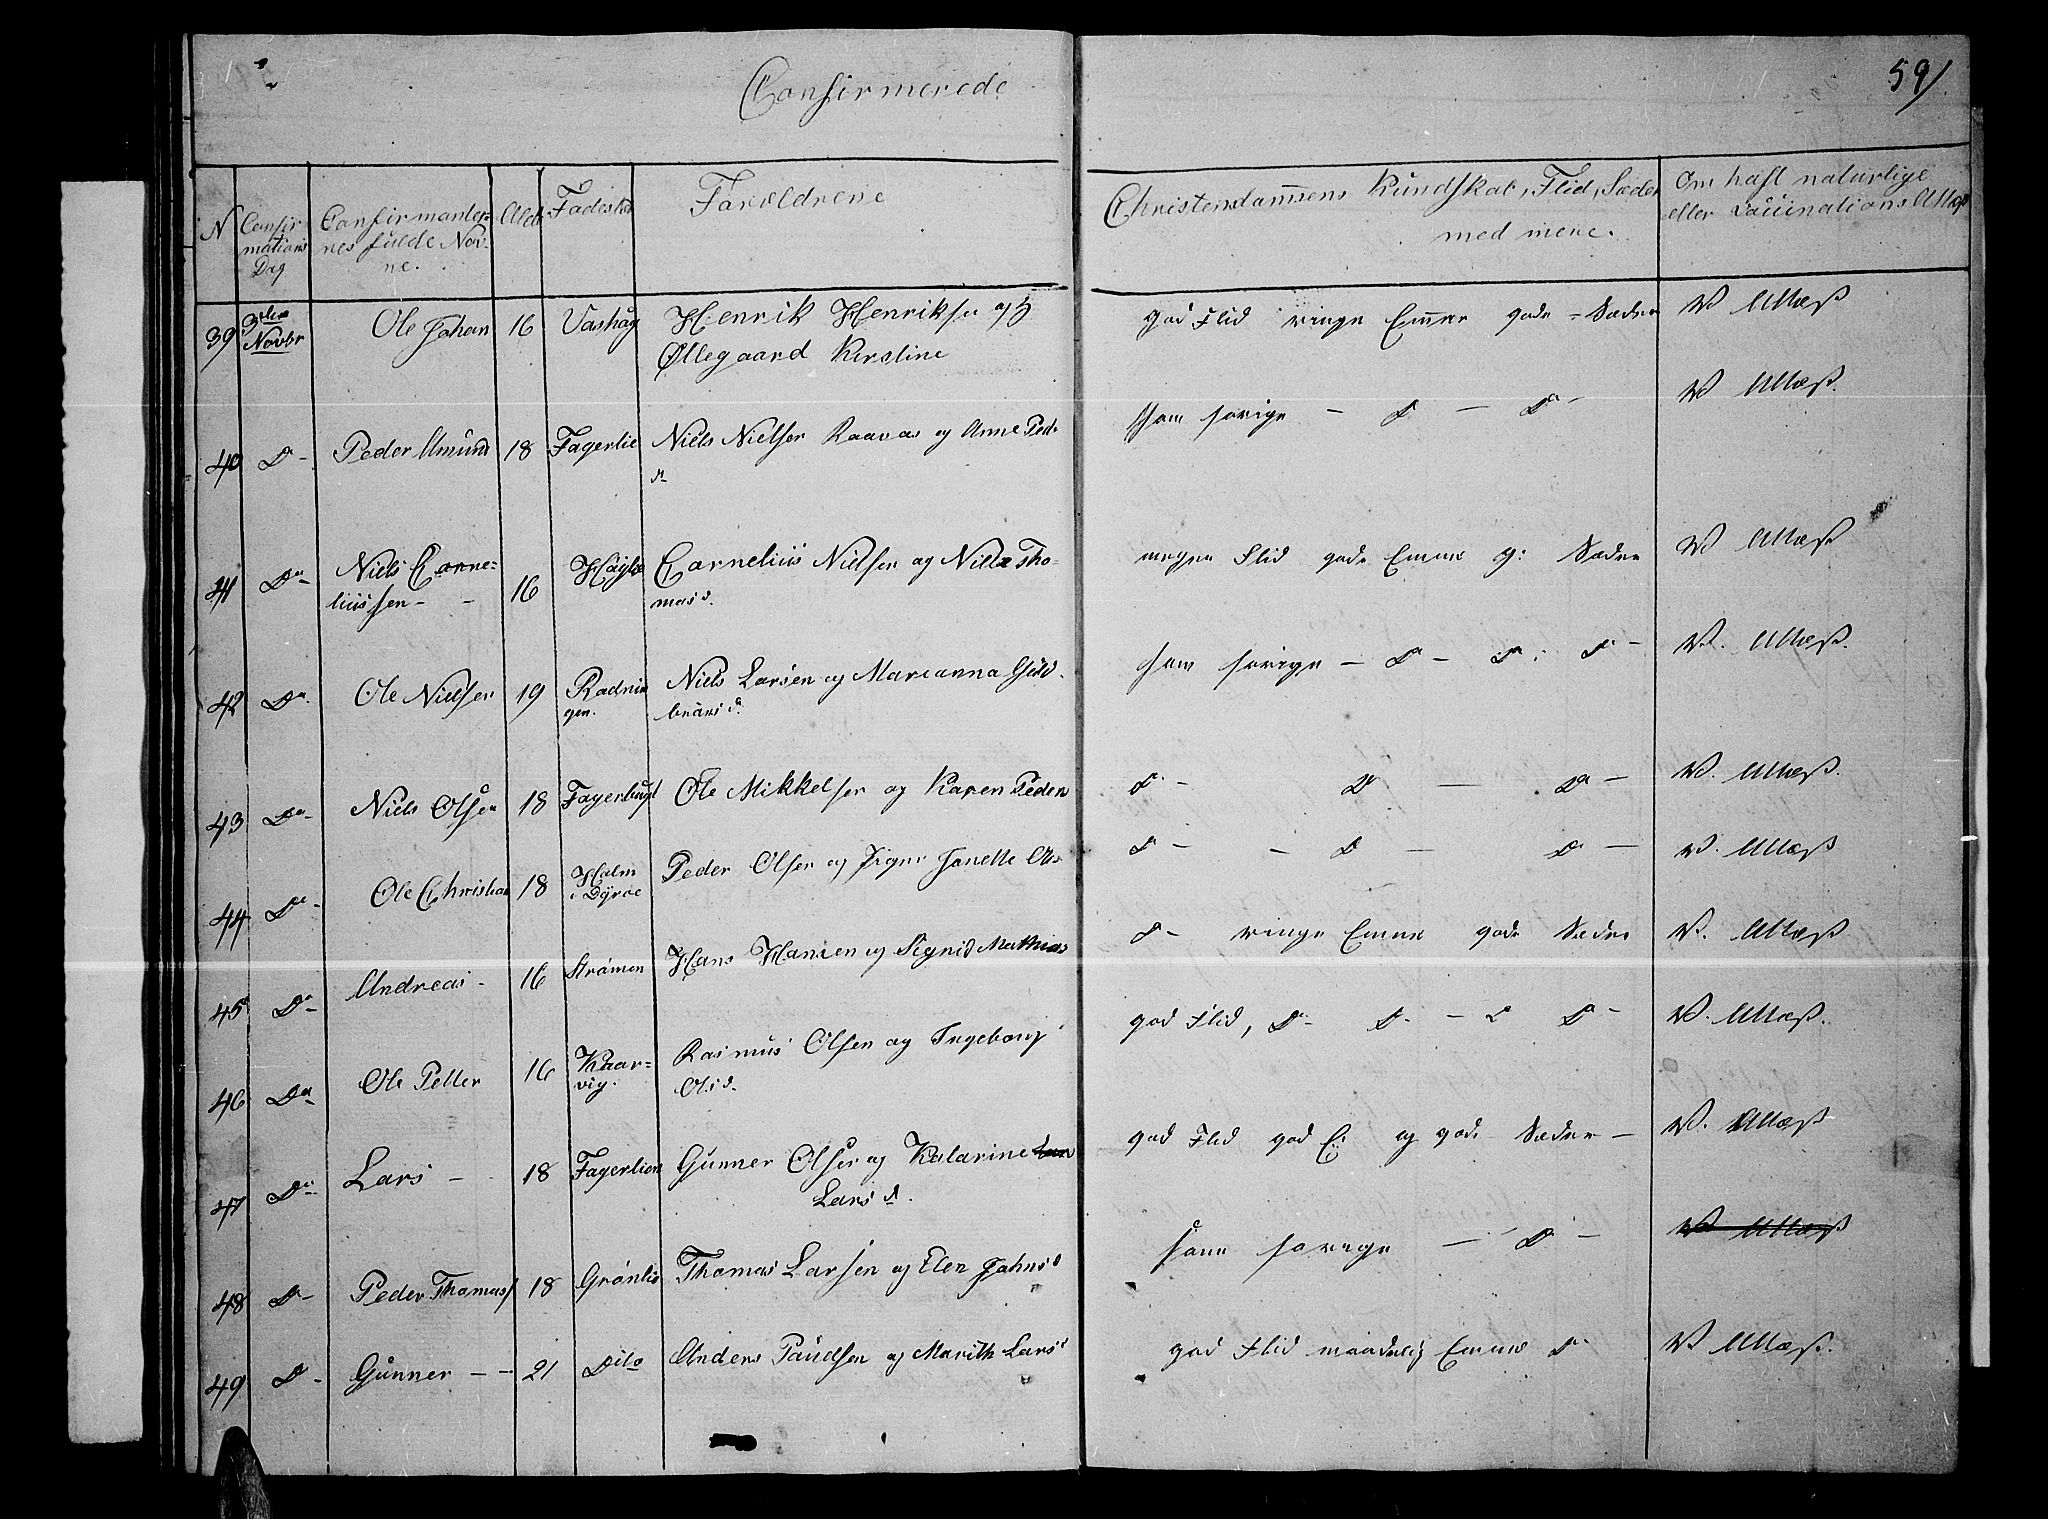 Confirmerede
59/
N
Confir
mations
Dag
Confirmanter-
nes fulde Nav-
ne.
Alder
Fødested
Forældrene
Christendommens Kundskab, Flid, Sæder
med mere.
Om haft naturlige
eller Vaccinations Attest
39 3die Novbr Ole Johan 16 Vashåg Henrik Henriksen og H
Øllegaard Kirstine
god Flid ringe Emner gode Sæder V Attest
40 Do Peder Amund 18 Fagerlie Niels Nielsen Raavas og Anne Ped.
dr
Som forige — Do — Do — V Attest.
41 Do Niels Corne-
liussen 16 Cornelius Nielsen og Nille Tho-
mas d.
megen Flid gode Emner g: Sæder V Attest
42 Do Ole Nielsen 19 Rødnin
gen. Niels Larsen og Marianna Guld-
brans d.
som forige — Do — Do Do — V. Attest.
43 Do Niels Olsen 18 Fagerbugt Ole Mikkelsen og Karen Peders
Do — Do — Do — V. Attest.
44 Do Ole Christian 18 Holm
i Dyrøe Peder Olsen og Signe Janette Ols
Do — Do — Do — V. Attest
45 Do Andreas 16 Strømen Hans Hansen og Signid Mathias
Do ringe Emner gode Sæder V. Attest
46 Do Ole Petter 16 Kaar-
vig. Rasmus Olsen og Ingeborg
Ols d.
god Flid, Do Do — Do — V. Attest.
47 Do Lars — 18 Fagerlien Gunner Olsen og Katarine
Lars d.
god Flid god E: og gode Sæder — V. Attest
48 Do Peder Thomas/ 18 Grønlie Thomas Larsen og Elen Johns d
som forige — Do — V Attest
49 Do Gunner — 21 Dito Anders Paulsen og Marith Lars d
god Flid maadelig Emner Do V Attest.